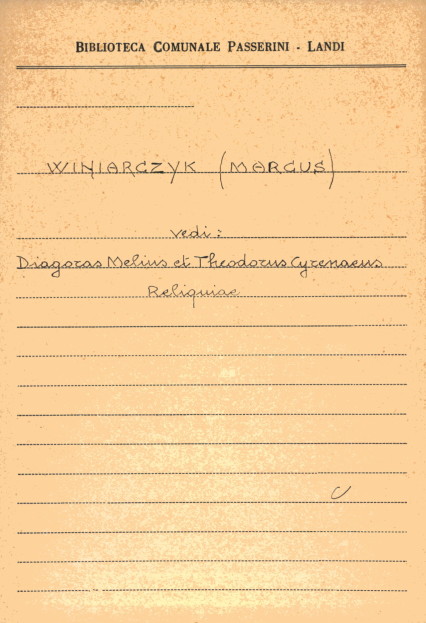 BIBLIOTECA COMUNALE PASSERINI - LANDI
WINIARCZYK (MARCUS)
vedi:
Diagoras Melius et Theodorus Cyrenaeus
Reliquiae